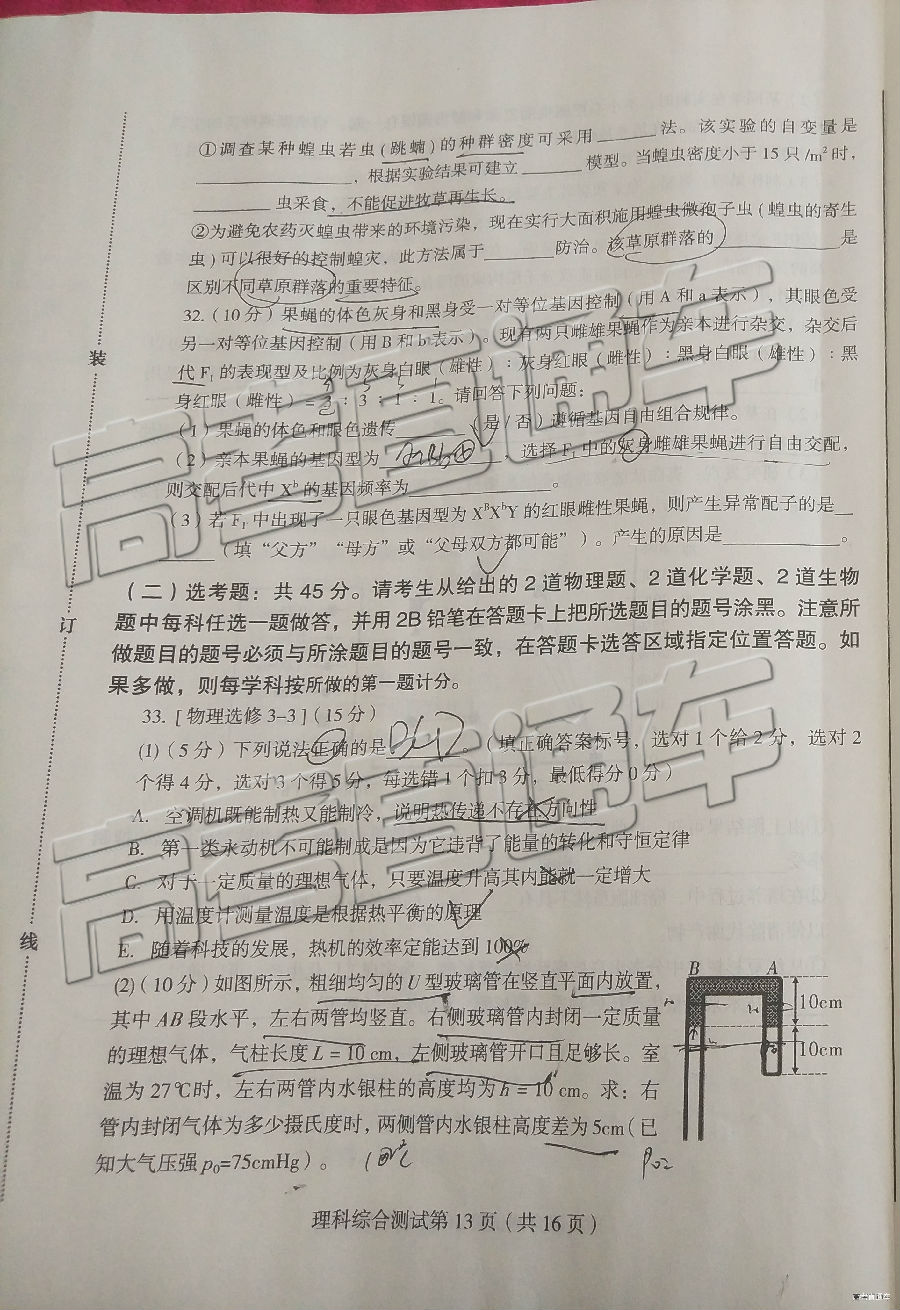 ①调查某种蝗虫若虫(跳蝻)的种群密度可采用______法。该实验的自变量是
______________,根据实验结果可建立______模型。当蝗虫密度小于15只/m²时,
________虫采食,不能促进牧草再生长。
②为避免农药灭蝗虫带来的环境污染,现在实行大面积施用蝗虫微孢子虫(蝗虫的寄生
虫)可以很好的控制蝗灾,此方法属于______防治。该草原群落的____________是
区别不同草原群落的重要特征。
32.(10分)果蝇的体色灰身和黑身受一对等位基因控制(用A和a表示),其眼色受
另一对等位基因控制(用B和b表示)。现有两只雌雄果蝇作为亲本进行杂交,杂交后
代F₁的表现型及比例为灰身白眼(雄性):灰身红眼(雌性):黑身白眼(雄性):黑
身红眼(雌性)=3:3:1:1。请回答下列问题:
(1)果蝇的体色和眼色遗传______(是/否)遵循基因自由组合规律。
(2)亲本果蝇的基因型为____________,选择F₁中的灰身雌雄果蝇进行自由交配,
则交配后代中Xᵇ的基因频率为____________。
(3)若F₁中出现了一只眼色基因型为XᴮXᵇY的红眼雌性果蝇,则产生异常配子的是__
____(填“父方”“母方”或“父母双方都可能”)。产生的原因是__________。
(二)选考题:共45分。请考生从给出的2道物理题、2道化学题、2道生物
题中每科任选一题做答,并用2B铅笔在答题卡上把所选题目的题号涂黑。注意所
做题目的题号必须与所涂题目的题号一致,在答题卡选答区域指定位置答题。如
果多做,则每学科按所做的第一题计分。
33.[物理选修3-3](15分)
(1)(5分)下列说法正确的是________。(填正确答案标号,选对1个给2分,选对2
个得4分,选对3个得5分,每选错1个扣3分,最低得分0分)
A. 空调机既能制热又能制冷,说明热传递不存在方向性
B. 第一类永动机不可能制成是因为它违背了能量的转化和守恒定律
C. 对于一定质量的理想气体,只要温度升高其内能就一定增大
D. 用温度计测量温度是根据热平衡的原理
E. 随着科技的发展,热机的效率定能达到100%
(2)(10分)如图所示,粗细均匀的U型玻璃管在竖直平面内放置,
其中AB段水平,左右两管均竖直。右侧玻璃管内封闭一定质量
的理想气体,气柱长度L=10cm,左侧玻璃管开口且足够长。室
温为27℃时,左右两管内水银柱的高度均为h=10cm。求:右
管内封闭气体为多少摄氏度时,两侧管内水银柱高度差为5cm(已
知大气压强p₀=75cmHg)。
B A
10cm
10cm
理科综合测试第13页(共16页)
装
订
线
高考直通车
高考直通车